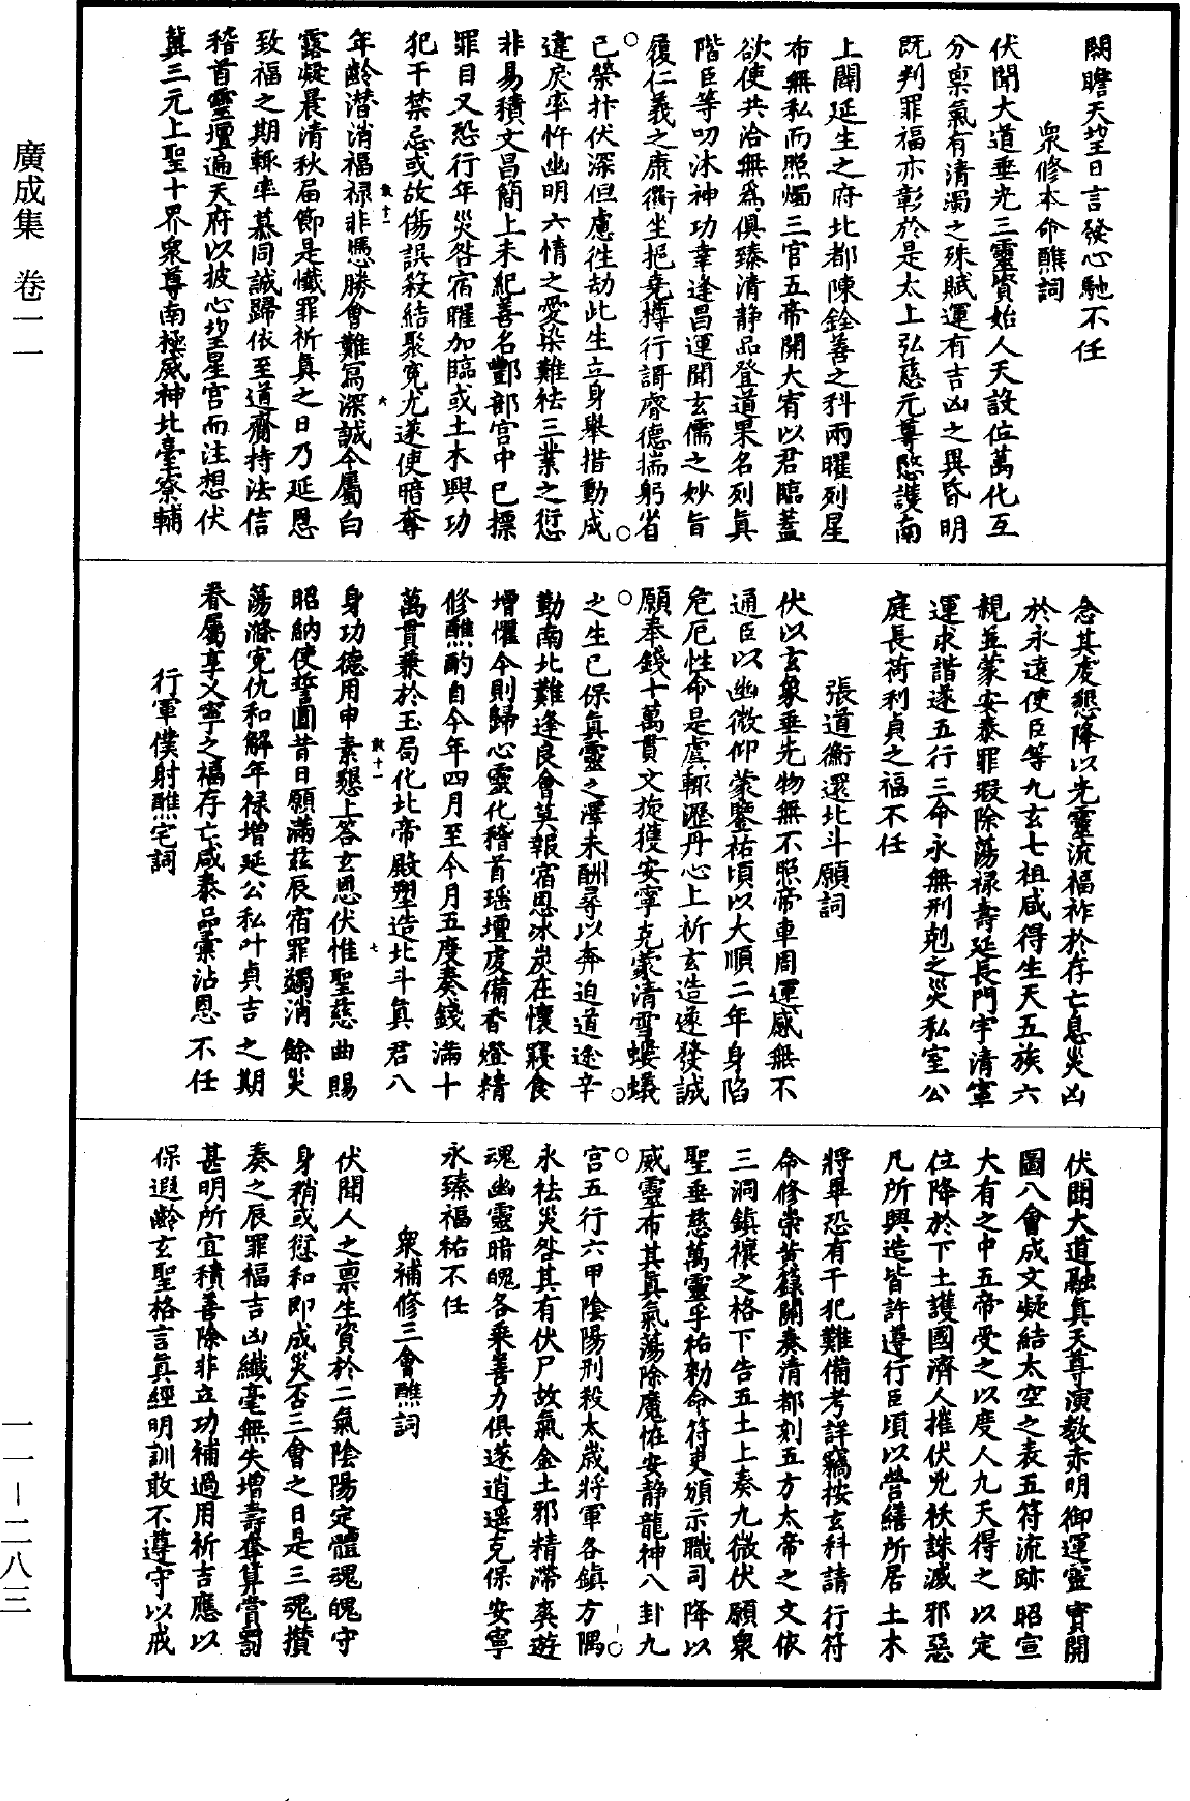 廣成集　卷一一
一一－二八三
闕瞻天望日言發心馳不任
衆修本命醮詞
伏聞大道垂光三靈資始人天設位萬化互
分稟氣有清濁之殊賦運有吉凶之異昏明
既判罪福亦彰於是太上弘慈元尊愍護南
上闢延生之府北都陳銓善之科兩曜列星
布無私而照燭三官五帝開大宥以君臨蓋
欲使共洽無為俱臻清静品登道果名列真
階臣等叨沐神功幸逢昌運聞玄儒之妙旨
履仁義之康衢坐挹堯樽行謌舜德揣躬省
己榮抃伏深但慮往劫此生立身舉措動成
違戾率忤幽明六情之愛染難袪三業之愆
非易積文昌簡上未紀善名酆部宫中已摽
罪目又恐行年災咎宿曜加臨或土木興功
犯干禁忌或故傷誤殺結聚冤尤遂使暗奪
年齡潜消福禄非憑勝會難寫深誠今屬白
露凝晨清秋届節是懺罪祈真之日乃延恩
致福之期輙率慕同誠歸依至道齋持法信
稽首靈壇遍天府以披心望星宫而注想伏
冀三元上聖十界衆尊南極威神北臺寮輔
念其虔懇降以光靈流福祚於存亡息災凶
於永遠使臣等九玄七祖咸得生天五族六
親並蒙安泰罪瑕除蕩禄壽延長門宇清寧
運求諧遂五行三命永無刑剋之災私室公
庭長荷利貞之福不任
張道衡還北斗願詞
伏以玄象垂光物無不照帝車周運感無不
通臣以幽微仰蒙鑒祐頃以大順二年身陷
危厄性命是虞輙瀝丹心上祈玄造遂發誠
願奉錢十萬貫文旋獲安寧克蒙清雪螻蟻
之生已保真靈之澤未酬尋以奔迫道途辛
勤南北難逢良會莫報宿恩冰炭在懷寢食
增懼今則歸心靈化稽首瑶壇虔備香燈精
修醮酌自今年四月至今月五度奏錢滿十
萬貫兼於玉局化北帝殿塑造北斗真君八
身功德用申素懇上答玄恩伏惟聖慈曲賜
昭納使誓圓昔日願滿兹辰宿罪蠲消餘災
蕩滌冤仇和解年禄增延公私叶貞吉之期
眷屬享乂寧之福存亡咸泰品彙沾恩不任
行軍僕射醮宅詞
伏聞大道融真天尊演教赤明御運靈寶開
圖八會成文凝結太空之表五符流跡昭宣
大有之中五帝受之以度人九天得之以定
位降於下土護國濟人摧伏兇袄誅滅邪惡
凡所興造皆許遵行臣頃以營繕所居土木
將畢恐有干犯難備考詳竊按玄科請行符
命修崇黄籙開奏清都刻五方太帝之文依
三洞鎮禳之格下告五土上奏九微伏願衆
聖垂慈萬靈孚祐勑命符吏頒示職司降以
威靈布其真氣蕩除魔怪安静龍神八卦九
宫五行六甲陰陽刑殺太歲將軍各鎮方隅
永袪災咎其有伏尸故氣金土邪精滯爽遊
魂幽靈暗魄各乘善力俱遂逍遥克保安寧
永臻福祐不任
衆補修三會醮詞
伏聞人之禀生資於二氣陰陽定體魂魄守
身稍或愆和即成災否三會之日是三魂攢
奏之辰罪福吉凶纖毫無失增壽奪算賞罰
甚明所宜積善除非立功補過用祈吉應以
保遐齡玄聖格言真經明訓敢不遵守以戒